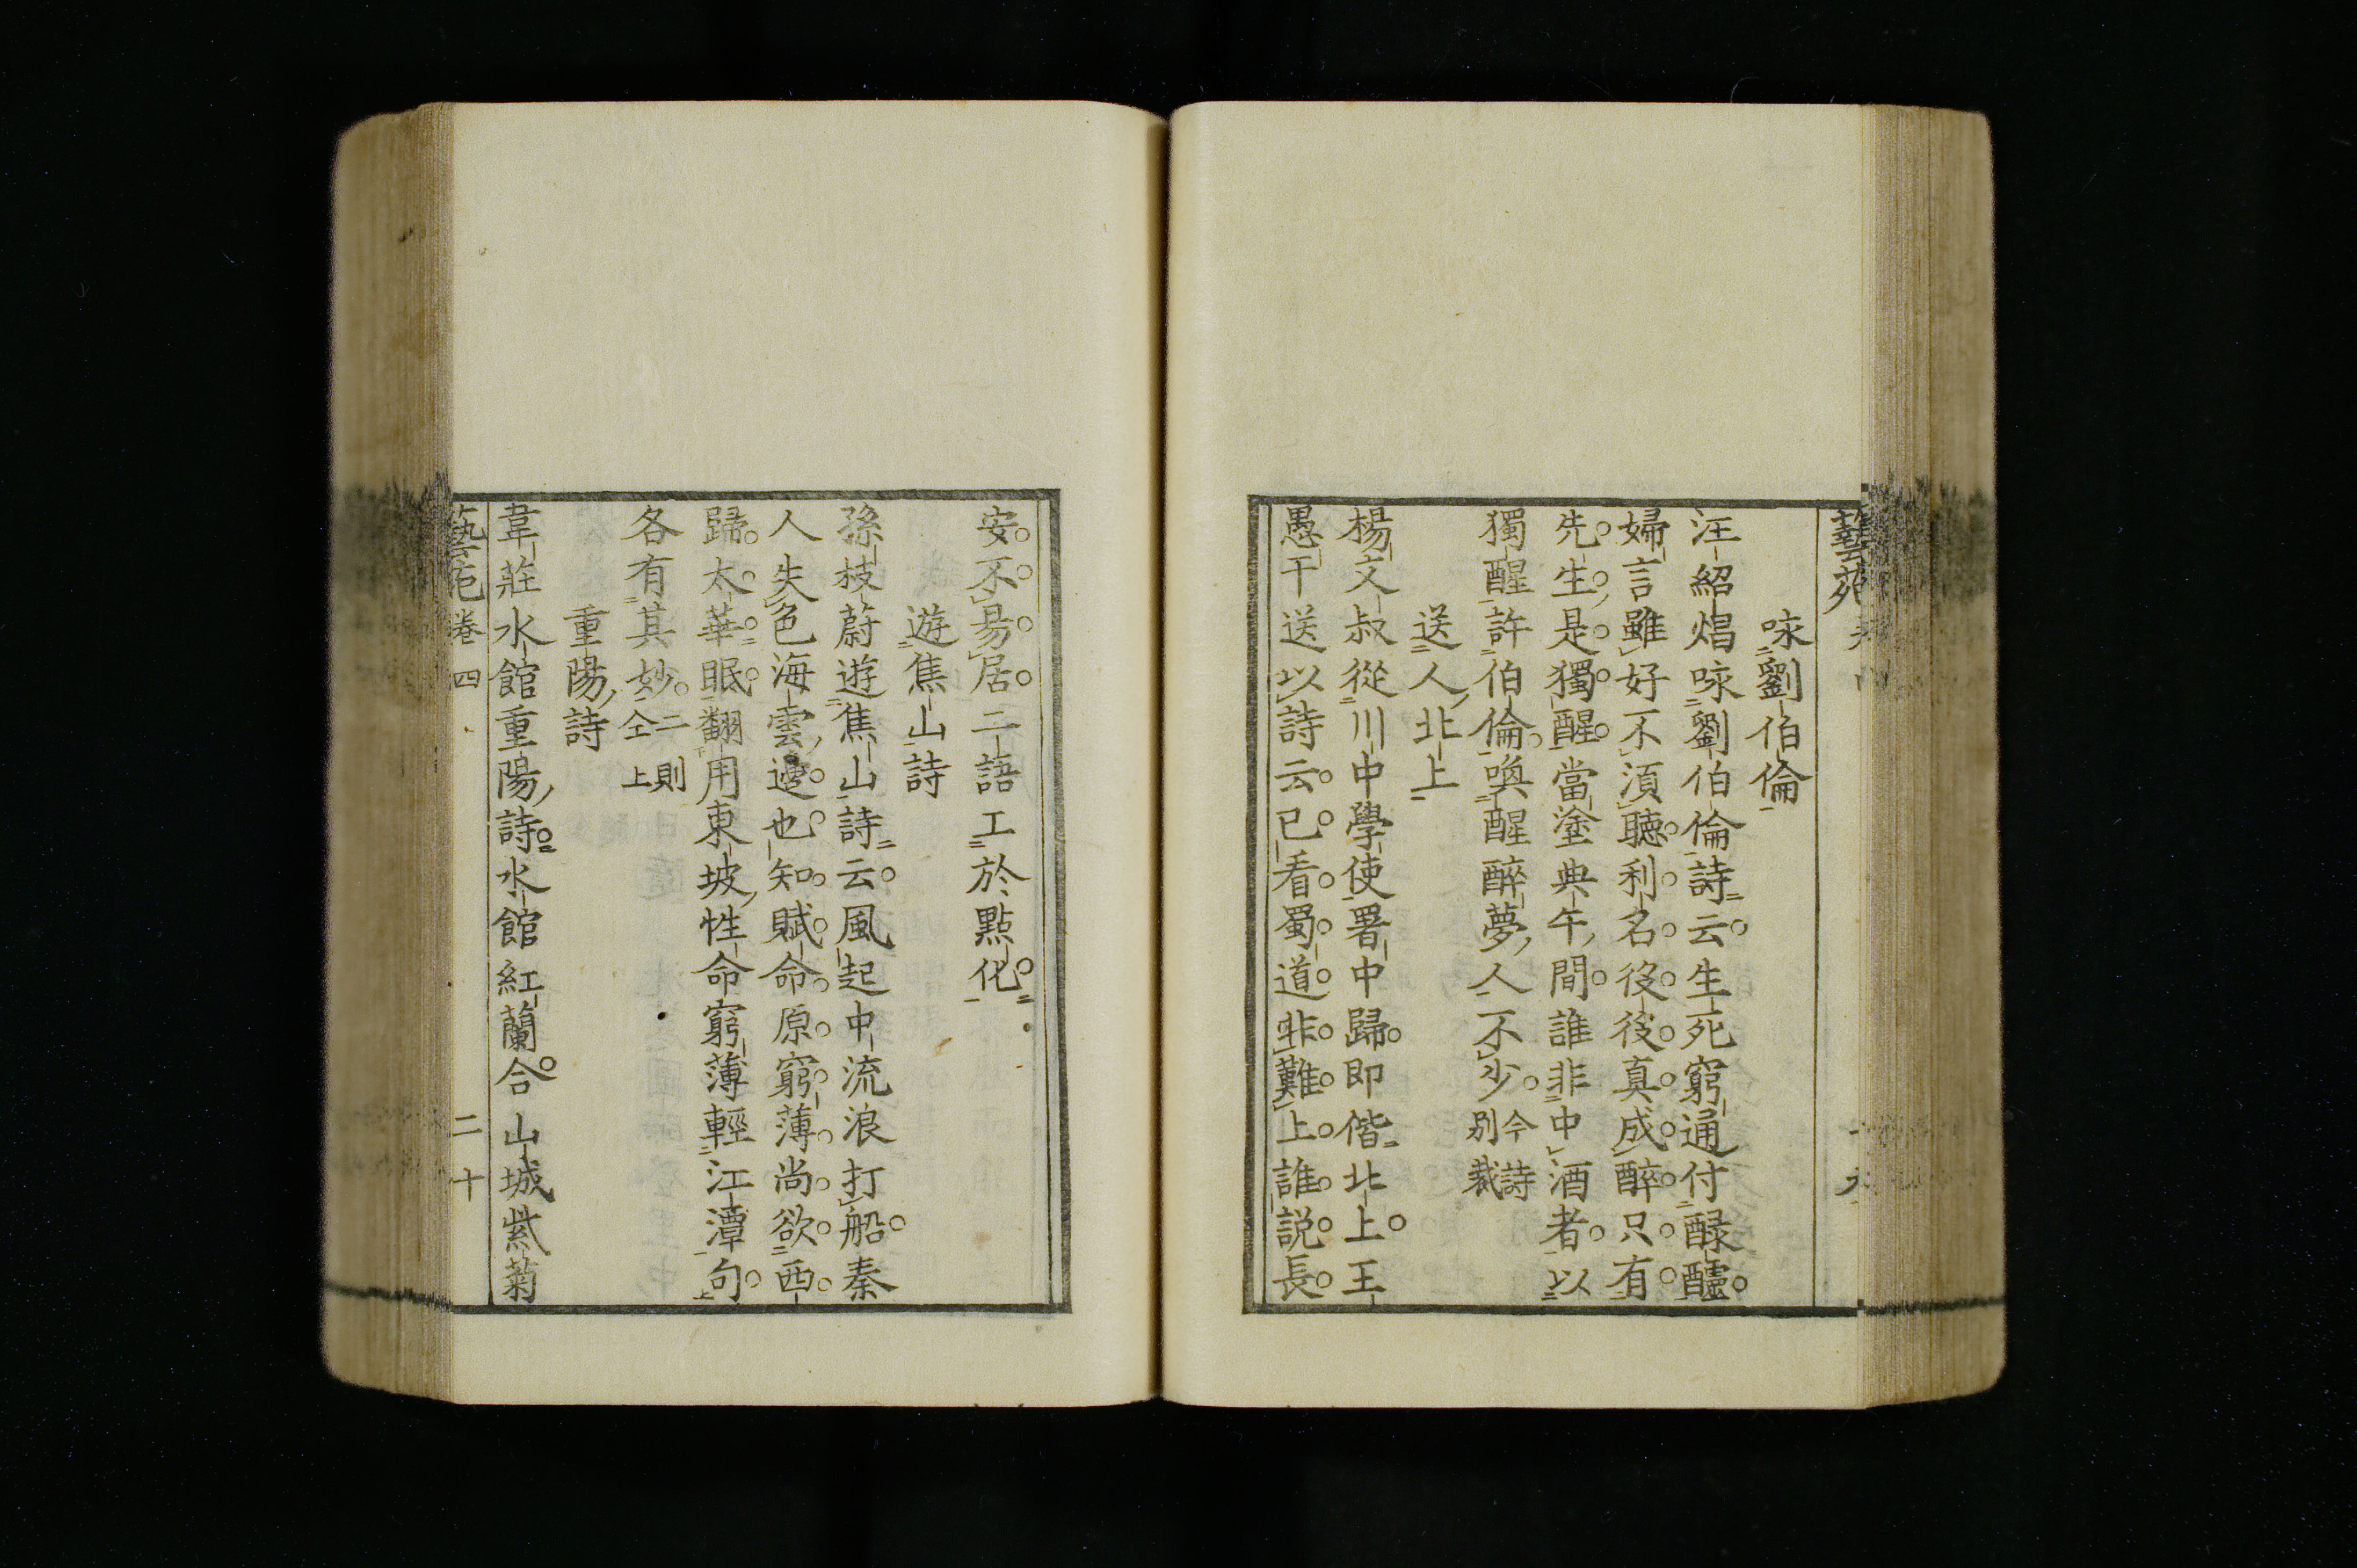 咏劉伯倫
汪紹焻咏劉伯倫詩云生死窮通付醁醽
婦言雖好不須聴利名役役真成醉只有
先生是獨醒當塗典午間誰非中酒者以
獨醒許伯倫喚醒醉夢人不少今詩別裁
送人北上
楊文叔從川中學使署中歸即偕北上王
愚千送以詩云已看蜀道非難上誰説長
安不易居二語工於點化
遊焦山詩
孫枝蔚遊焦山詩云風起中流浪打船秦
人失色海雲邊也知賦命原窮薄尚欲西
歸太華眠翻用東坡性命窮薄輕江潭句
各有其妙二則仝上
重陽詩
韋莊水館重陽詩水館紅蘭合山城紫菊
藝苑卷四 二十